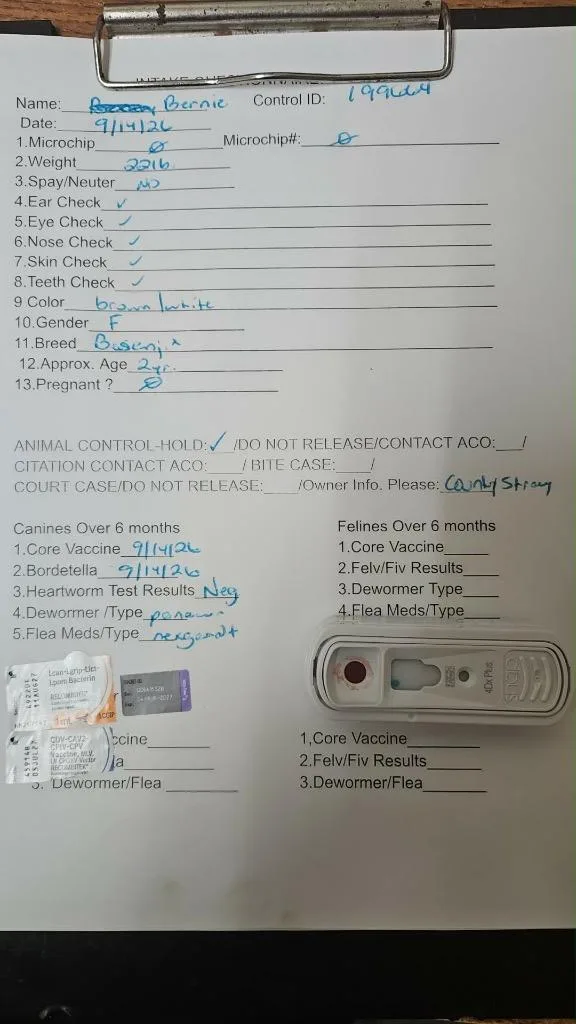 INTAKE QUESTIONNAIRE
Name: Bernie Control ID: 199664
Date: 9/14/26
1.Microchip Ø Microchip#: Ø
2.Weight 22lb
3.Spay/Neuter NO
4.Ear Check ✓
5.Eye Check ✓
6.Nose Check ✓
7.Skin Check ✓
8.Teeth Check ✓
9 Color brown/white
10.Gender F
11.Breed Basenji x
12.Approx. Age 2yr.
13.Pregnant ? Ø
ANIMAL CONTROL-HOLD:✓ /DO NOT RELEASE/CONTACT ACO:___/
CITATION CONTACT ACO:____/ BITE CASE:____/
COURT CASE/DO NOT RELEASE:____/Owner Info. Please: County Stray
Canines Over 6 months
1.Core Vaccine 9/14/26
2.Bordetella 9/14/26
3.Heartworm Test Results Neg
4.Dewormer /Type panacur
5.Flea Meds/Type nexgardt
Felines Over 6 months
1.Core Vaccine_____
2.Felv/Fiv Results____
3.Dewormer Type____
4.Flea Meds/Type____
Lcan-Igrip-Lict-
Lpom Bacterin
RECOMBITEK
1 mL
CDV-CAV2-
CPIV-CPV
Vaccine, MLV,
RECOMBITEK
4Dx Plus
ccine
la
3. Dewormer/Flea
1,Core Vaccine______
2.Felv/Fiv Results______
3.Dewormer/Flea_______